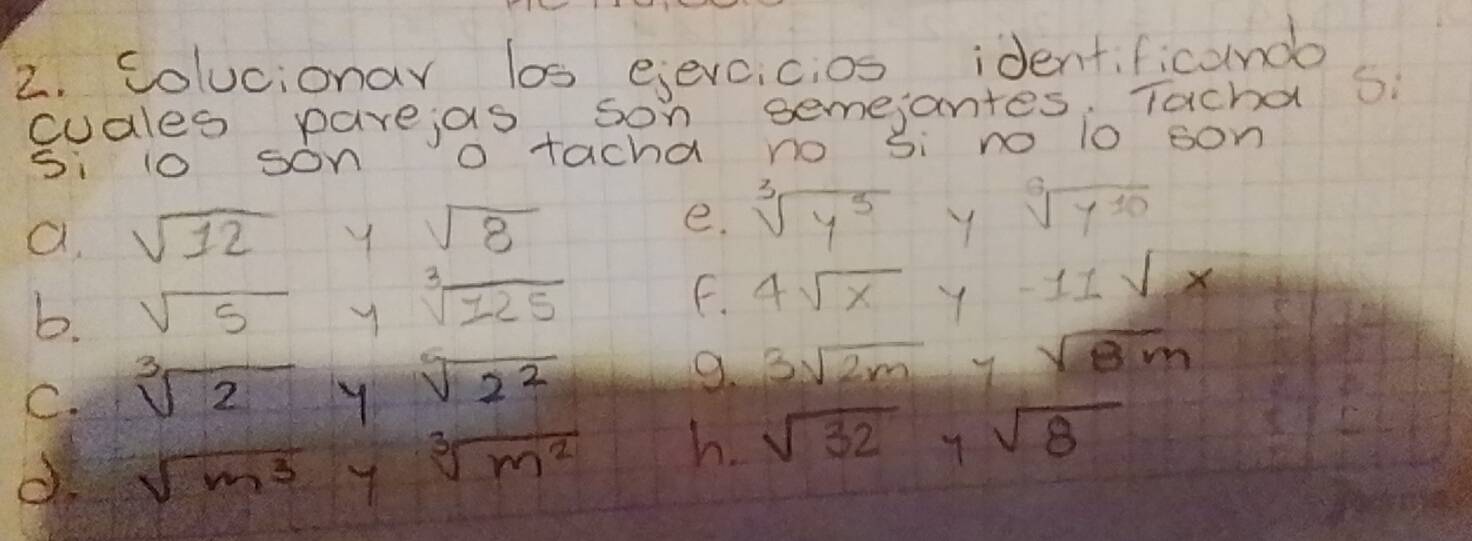 2. Solucionar los ejercicios identificando
cuales parejas son semejantes. Tacha si
si lo son o tacha no si no lo son
a. √12 y √8
b. √5 y ∛125
c. ∛2 y ⁶√2²
d. √m³ y ∛m²
e. ∛y⁵ y ⁶√y¹⁰
f. 4√x y -11√x
g. 3√2m y √8m
h. √32 y √8